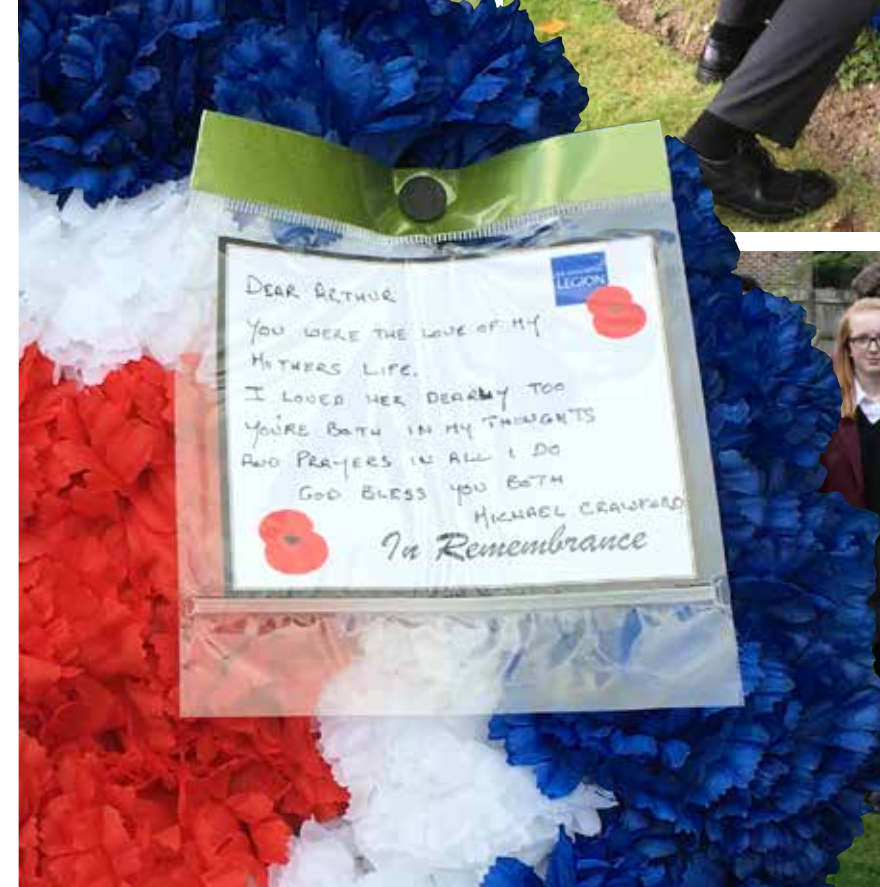 DEAR ARTHUR
LEGION
YOU WERE THE LOVE OF MY
MOTHERS LIFE.
I LOVED HER DEARLY TOO
YOU'RE BOTH IN MY THOUGHTS
AND PRAYERS IN ALL I DO
GOD BLESS YOU BOTH
MICHAEL CRAWFORD
In Remembrance